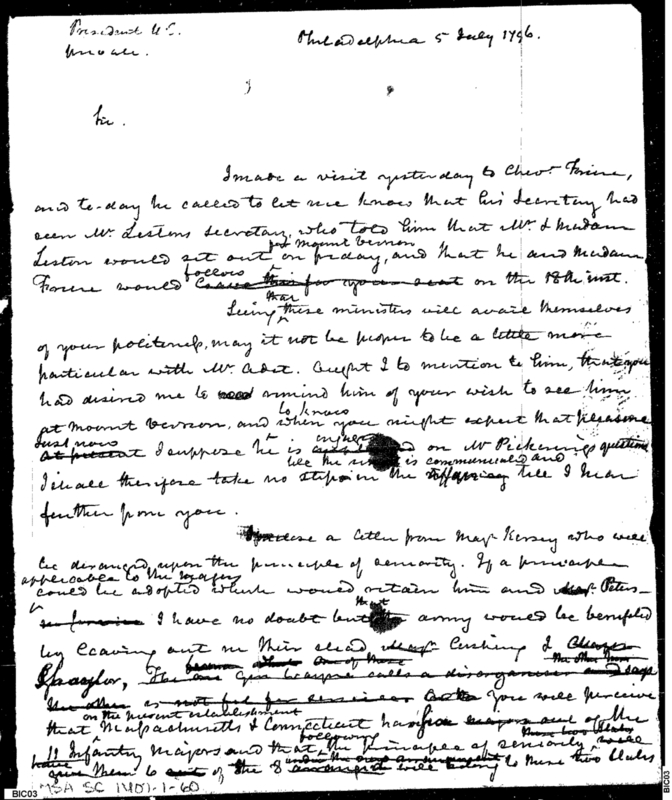 President U.S.
private.
Philadelphia 5 July 1796.
Sir.
I made a visit yesterday to Chevr. Freire,
and to-day he called to let me know that his Secretary had
seen Mr. Listons secretary, who told him that Mr. & Madam
for Mount Vernon
Liston would set out on friday, and that he and Madam
follow
Freire would on the 18th inst.
than
Seeing these ministers will avail themselves
of your politeness, may it not be proper to be a little more
particular with Mr. Adet. Ought I to mention to him, that you
had desired me to remind him of your wish to see him
to know
at Mount Vernon, and when you might expect that pleasure
Just now
at present I suppose he is on Mr Pickerings questions
till the is communicated and
I shall therefore take no step in the till I hear
further from you.
Inclose a letter from Majr Kersey who will
be deranged upon the principle of seniority. If a principle
applicable to the majors
could be adopted which would retain him and Majr. Peters-
that
I have no doubt but the army would be benefited
by leaving out in their stead Majr. Cushing &
The one Gen Wayne calls a disorganiser and says
the other is not fit for service You will perceive
on the present establishment
that Massachusetts & Connecticut have majors out of the
these two States
11 Infantry Majors and that following the principle of seniority will
give them 6 of the 8 to these two States
MSA SC 1407-1-60
BIC03
BIC03